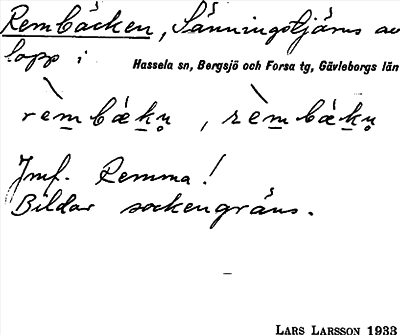 Rembäcken, Sänningstjärns av
lopp i
Hassela sn, Bergsjö och Forsa tg, Gävleborgs län
Jmf. Remma!
Bildar sockengräns.
LARS LARSSON 1933